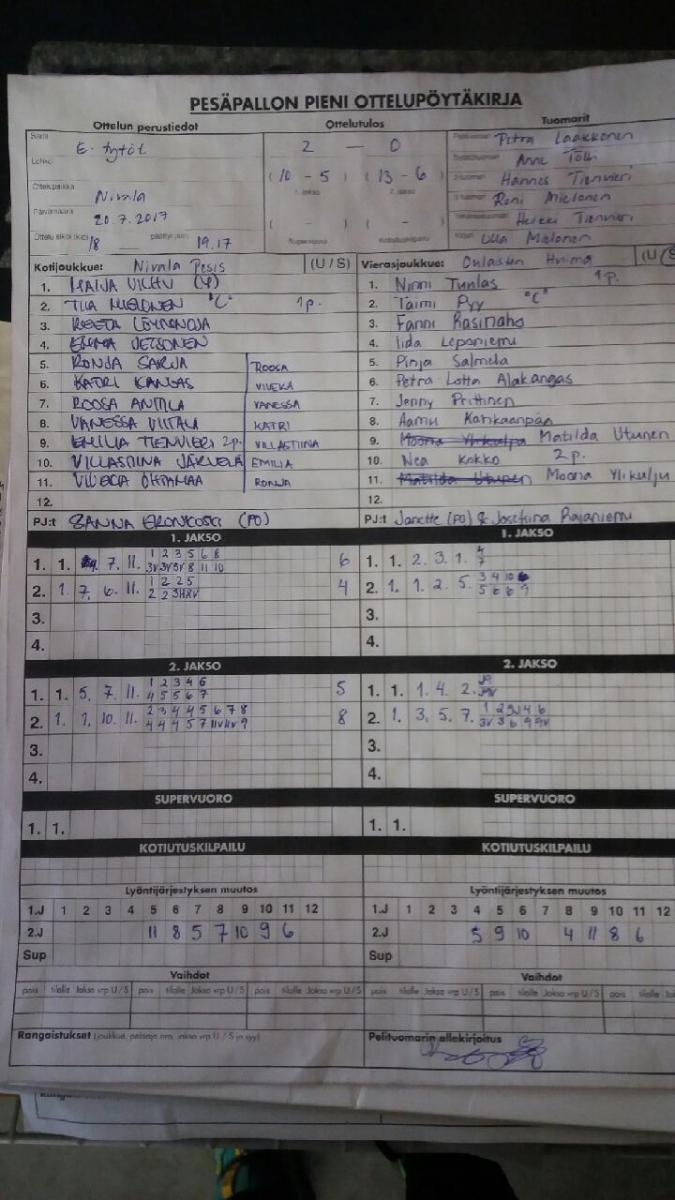 PESÄPALLON PIENI OTTELUPÖYTÄKIRJA
Ottelun perustiedot Ottelutulos Tuomarit
Sarja E-tytöt 2 – 0 Petra Laakkonen
Lohko Anne
Ottelupaikka Nivala (10 – 5) (13 – 6) Hannes Tienvieri
1. jakso 2. jakso Roni Mielonen
Päivämäärä 20.7.2017 ( – ) ( – ) Heikki Tienvieri
18 19.17 Supervuoro Kotiutuskilpailu Ulla Mielonen
Kotijoukkue: Nivala Pesis (U / S) Vierasjoukkue: Oulaisten Huima (U / S
1. MAIJA VILHU 1. Ninni Tuulas 1p.
2. TIIA MIELONEN "C" 1p. 2. Taimi Pyy "C"
3. REETA 3. Fanni Rasinaho
4. 4. Iida Leponiemi
5. RONJA SARJA ROOSA 5. Pinja Salmela
6. KATRI KANGAS VIIVEKA 6. Petra Lotta Alakangas
7. ROOSA ANTTILA VANESSA 7. Jenny Prittinen
8. VANESSA VIITALA KATRI 8. Aamu Kankaanpää
9. EMILIA TIENVIERI 2p. VILLASTIINA 9. Matilda Utunen
10. VILLASTIINA JÄRVELÄ EMILIA 10. Nea Kokko 2p.
11. RONJA 11. Matilda Utunen Moona Ylikulju
12. 12.
PJ:t SANNA (PO) PJ:t Janette (PO) & Josefiina Rajaniemi
1. JAKSO 1. JAKSO
1. 1. 7. 11. 1 2 3 5 6 8 6 1. 1. 2. 3. 1. 4
3V 3V 3V 8 11 10 7
2. 1. 7. 6. 11. 1 2 2 5 4 2. 1. 1. 2. 5. 3 4 10
2 2 5 6 6 9
3. 3.
4. 4.
2. JAKSO 2. JAKSO
1. 1. 5. 7. 11. 1 2 3 4 6 5 1. 1. 1. 4. 2.
4 5 5 6 7
2. 1. 1. 10. 11. 2 3 4 4 5 6 7 8 8 2. 1. 3. 5. 7. 1 2 4 6
4 4 4 5 7 11V 11V 9 3V 3 6 9 9V
3. 3.
4. 4.
SUPERVUORO SUPERVUORO
1. 1. 1. 1.
KOTIUTUSKILPAILU KOTIUTUSKILPAILU
Lyöntijärjestyksen muutos Lyöntijärjestyksen muutos
1.J 1 2 3 4 5 6 7 8 9 10 11 12 1.J 1 2 3 4 5 6 7 8 9 10 11 12
2.J 11 8 5 7 10 9 6 2.J 5 9 10 4 11 8 6
Sup Sup
Vaihdot Vaihdot
pois tilalle Jakso vrp U / S pois tilalle Jakso vrp U / S pois tilalle Jakso vrp U / S pois tilalle Jakso vrp U / S pois tilalle Jakso vrp U / S pois tilalle
Rangaistukset (joukkue, pelaaja nro, jakso vrp U / S ja syy) Pelituomarin allekirjoitus